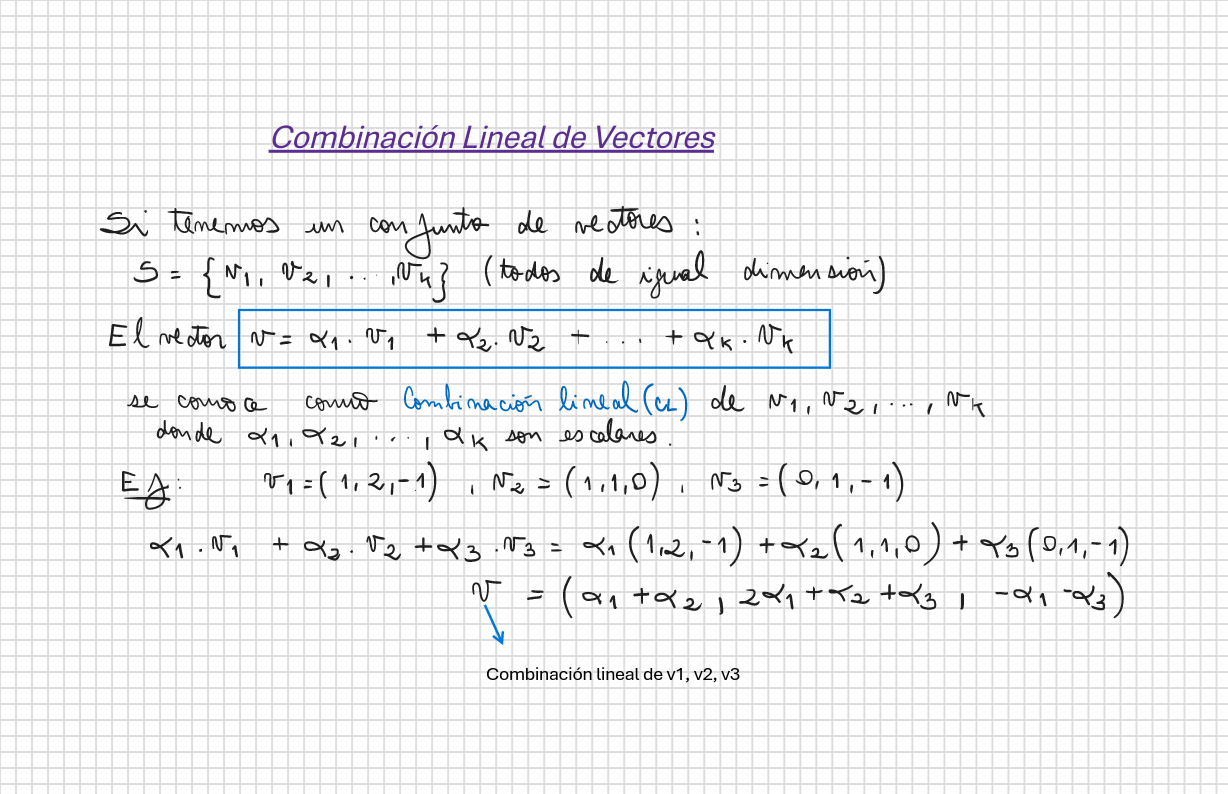 Combinación Lineal de Vectores
Si tenemos un conjunto de vectores :
S = {v1, v2, ..., vk} (todos de igual dimensión)
El vector v = α1 · v1 + α2 · v2 + ... + αk · vk
se conoce como Combinación lineal (CL) de v1, v2, ..., vk
donde α1, α2, ..., αk son escalares.
EJ: v1 = (1, 2, -1) , v2 = (1,1,0) , v3 = (0, 1, -1)
α1 · v1 + α2 · v2 + α3 · v3 = α1 (1,2,-1) + α2 (1,1,0) + α3 (0,1,-1)
v = (α1 + α2 , 2α1 + α2 + α3 , -α1 -α3)
Combinación lineal de v1, v2, v3